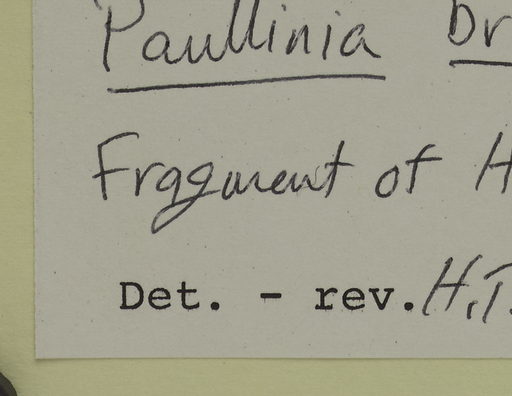 Paullinia br
Fragment of H
Det. - rev. H.T.